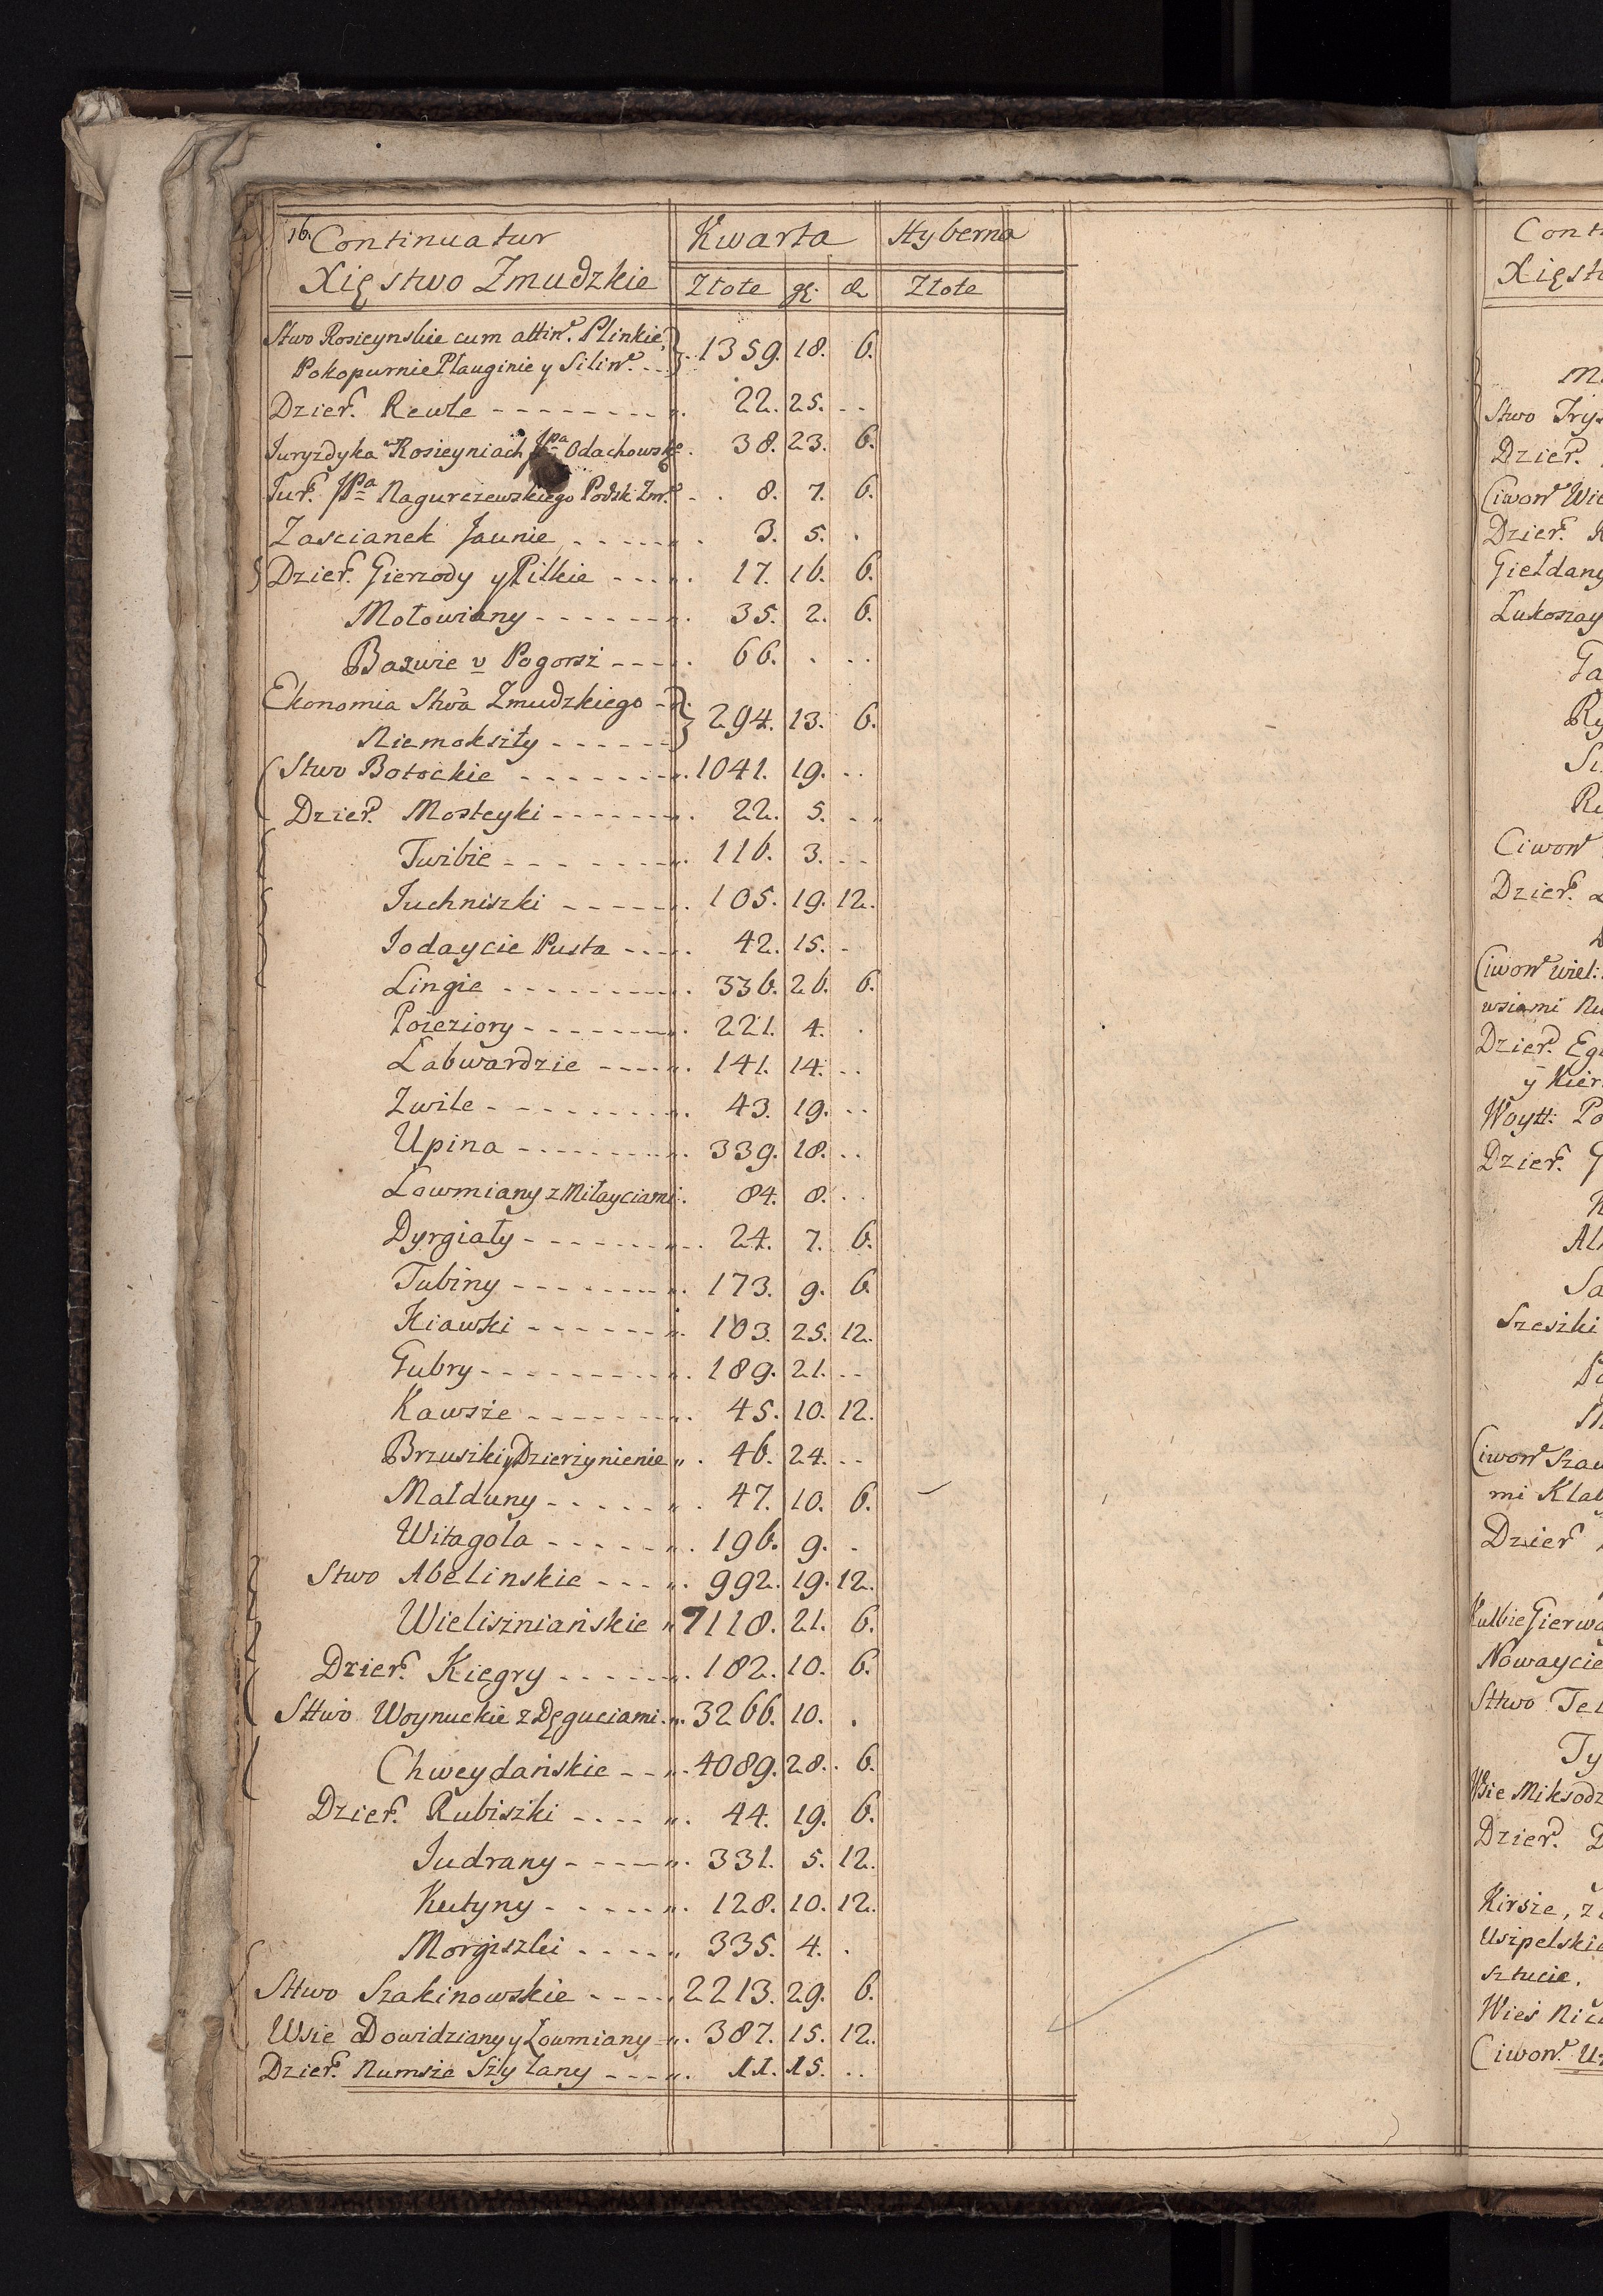 16. Continuatur Kwarta Hyberna
Xięstwo Zmudzkie Złote gr: d. Złote
Stwo Rosieynskie cum attin. Plinkie,
Pokopurnie Płauginie y Silin. 1359. 18. 6.
Dzier. Rewle 22. 25.
Juryzdyka w Rosieyniach JPa Odachowskgo 38. 23. 6.
Jur. JPa Nagurczewskiego Podsk. Zm. 8. 7. 6.
Zascianek Jaunie 3. 5.
Dzier. Gierzody y Pilkie 17. 16. 6.
Mołowiany 35. 2. 6.
Bazwie v Pogorsz 66.
Ekonomia Stwa Zmudzkiego
Niemokszty 294. 13. 6.
Stwo Botockie 1041. 19.
Dzier. Mosteyki 22. 5.
Twibie 116. 3.
Juchniszki 105. 19. 12.
Jodaycie Pusta 42. 15.
Lingie 336. 26. 6.
Poieziory 221. 4.
Labwardzie 141. 14.
Zwile 43. 19.
Upina 339. 18.
Lowmiany z Miłayciami 84. 8.
Dyrgiały 24. 7. 6.
Tubiny 173. 9. 6.
Kiawki 103. 25. 12.
Gubry 189. 21.
Kawsze 45. 10. 12.
Brzuszki y Dzierzynienie 46. 24.
Małduny 47. 10. 6.
Witagola 196. 9.
Stwo Abelinskie 992. 19. 12.
Wieliszniańskie 7118. 21. 6.
Dzier. Kiegry 182. 10. 6.
Sttwo Woynuckie z Dęguciami 3266. 10.
Chweydańskie 4089. 28. 6.
Dzier. Rubiszki 44. 19. 6.
Judrany 331. 5. 12.
Kutyny 128. 10. 12.
Morgiszki 335. 4.
Sttwo Szakinowskie 2213. 29. 6.
Wsie Dowidziany y Łowmiany 387. 15. 12.
Dzier. Numsze Szylany 11. 15.
Xięst
Stwo Trys
Dzier.
Ciwon Wie
Dzier.
Giełdany
Lukoszay
Ciwon
Dzier.
Ciwon wiel:
wsiami
Dzier.
y Kier
Woytt: Po
Dzier.
Szeszki
Ciwon Szaw
mi
Dzier
Kulbie Gierwa
Nowaycie
Sttwo Tel
Wsie Miksodz
Dzier.
Kirsze,
Uszpelskie
sztucie,
Wieś
Ciwon.